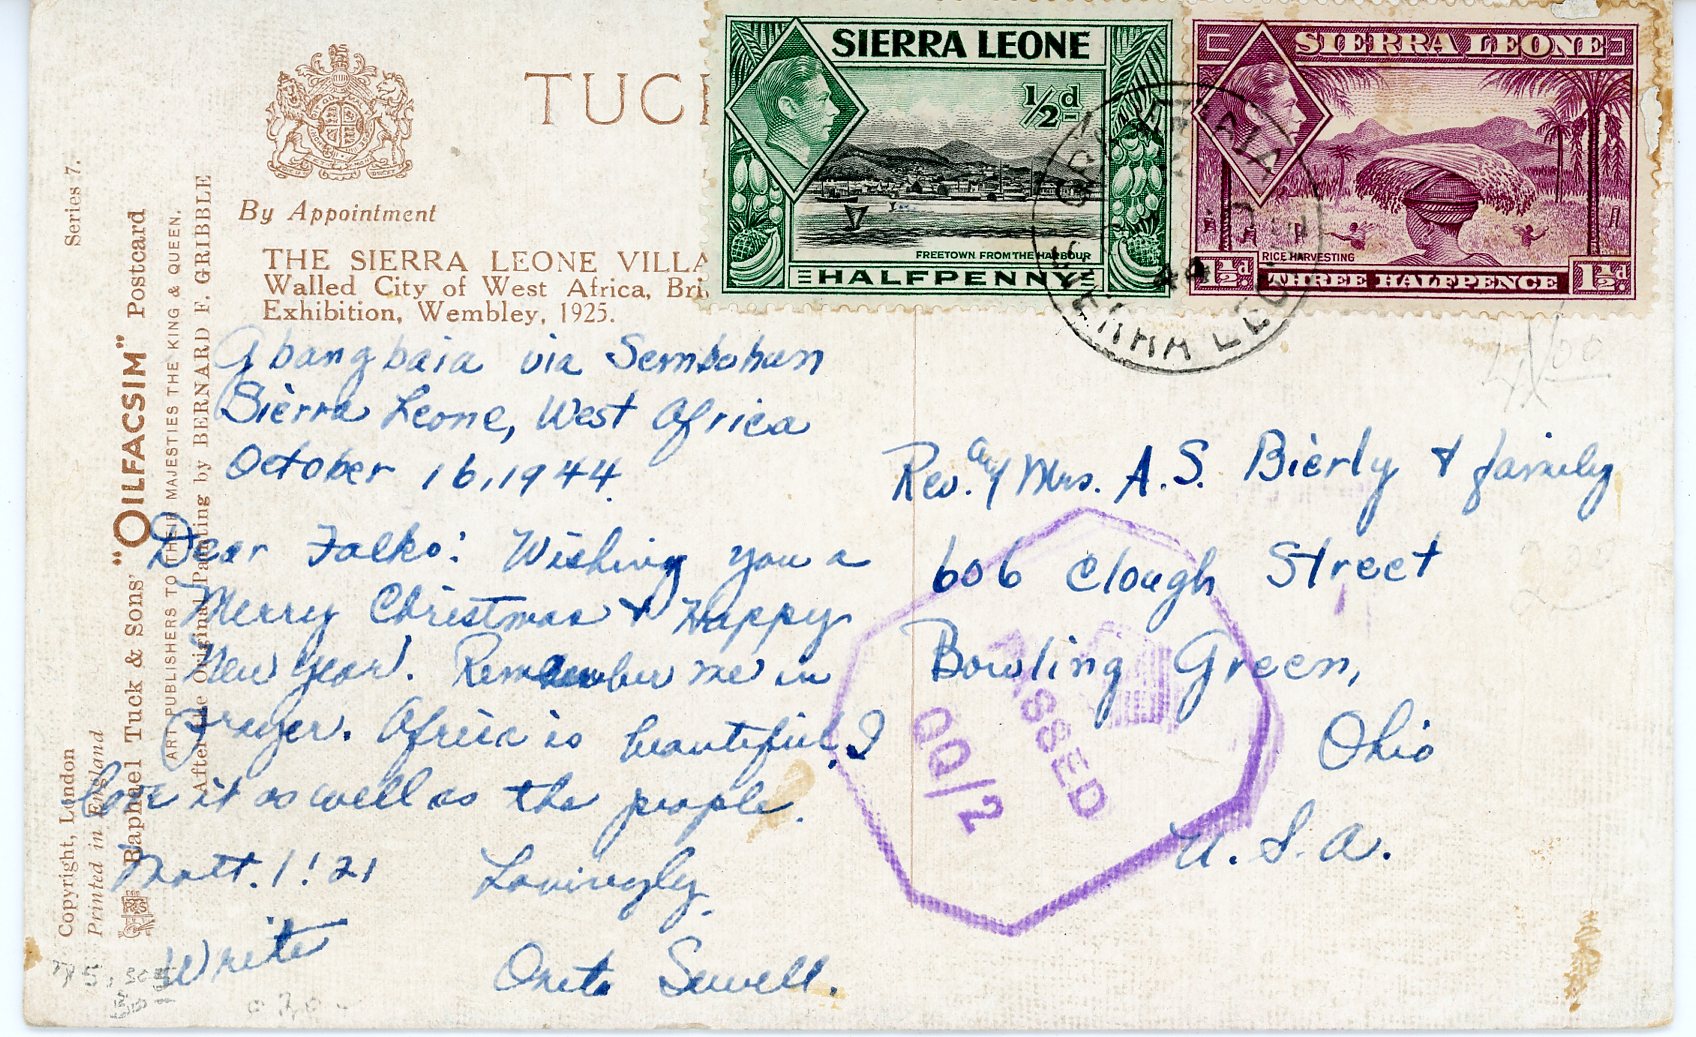 TUC
By Appointment
THE SIERRA LEONE VILLA
Walled City of West Africa, Bri
Exhibition, Wembley, 1925.
Series 7.
"OILFACSIM" Postcard
Raphael Tuck & Sons'
ART PUBLISHERS TO THEIR MAJESTIES THE KING & QUEEN.
After the Original Painting by BERNARD F. GRIBBLE
Copyright, London
Printed in England
SIERRA LEONE
1/2d
FREETOWN FROM THE HARBOUR
HALFPENNY
SIERRA LEONE
RICE HARVESTING
1½d THREE HALFPENCE 1½d
Gbangbaia via Sembehun
Sierra Leone, West Africa
October 16, 1944.
Dear Folks: Wishing you a
Merry Christmas & Happy
New Year. Remember me in
Prayer. Africa is beautiful. I
love it as well as the people.
Matt. 1:21 Lovingly,
Write Sewell.
Rev. and Mrs. A. S. Bierly & family
606 Clough Street
Bowling Green,
Ohio
U. S. A.
PASSED
QQ/2